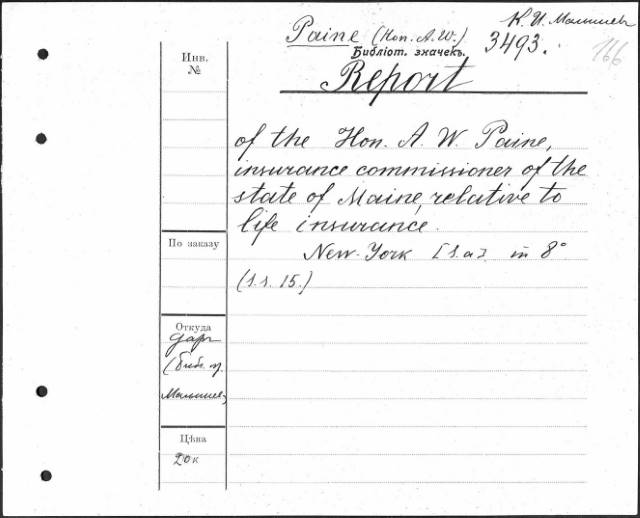 К. И. Малышев
Paine (Hon. A. W.)
Библіот. значекъ.
3493.
166
Report
Инв.
№
of the Hon. A. W. Paine,
insurance commissioner of the
state of Maine, relative to
life insurance.
New-York [s.a]. in 8°
(s.s. 15.)
По заказу
Откуда
даръ
(библ. п.
Малышев
Цѣна
20 к